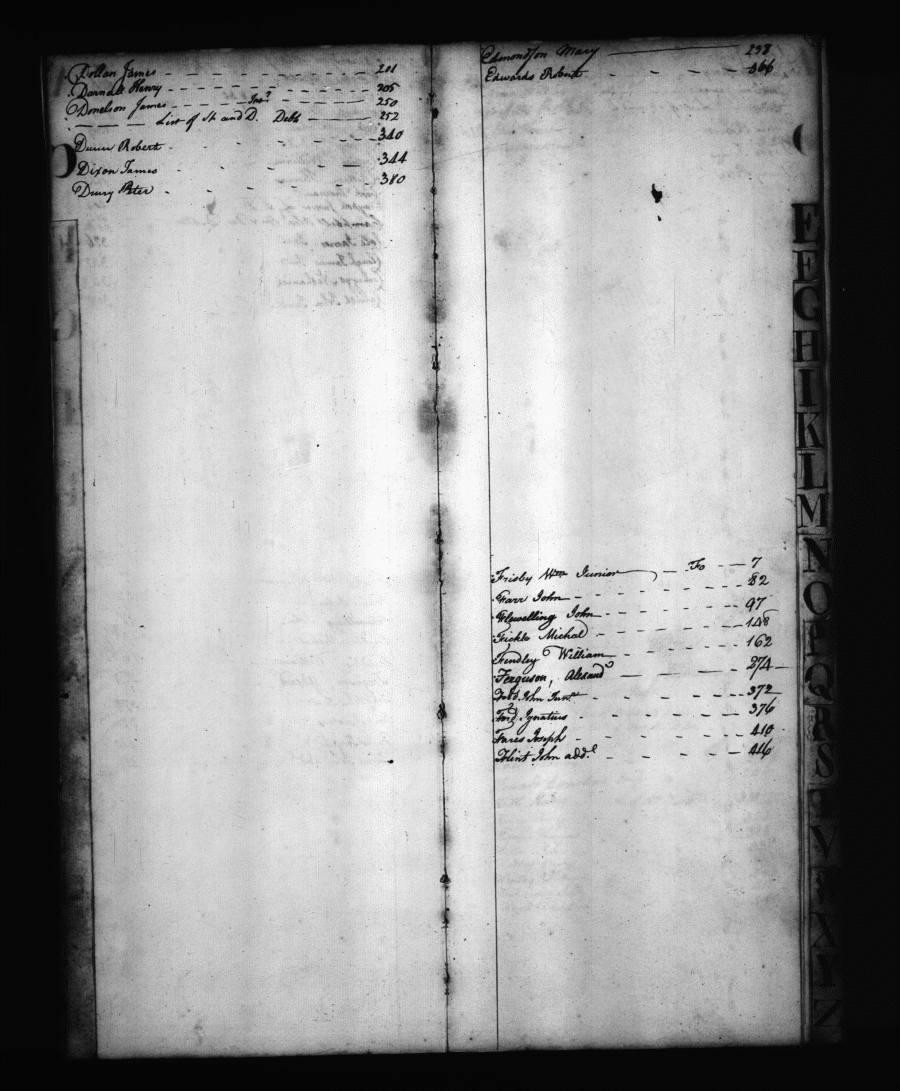 Dollan James 201
Darnall Henry 205
Donelson James Inv.y 250
List of Sp. and D. Debts 252
Dunn Robert 340
Dixon James 344
Drury Peter 380
D
Edmondson Mary 298
Edwards Robert 366
Frisby Wm Junior Fo 7
Farr John 82
Flewelling John 97
Fickle Michal 148
Fendley William 162
Ferguson, Alexand 274
Ford John Junr 372
Ford Ignatius 376
Fares Joseph 410
Flint John add.l 416
F
G
H
I
K
L
M
N
O
P
Q
R
S
T
V
X
Y
Z